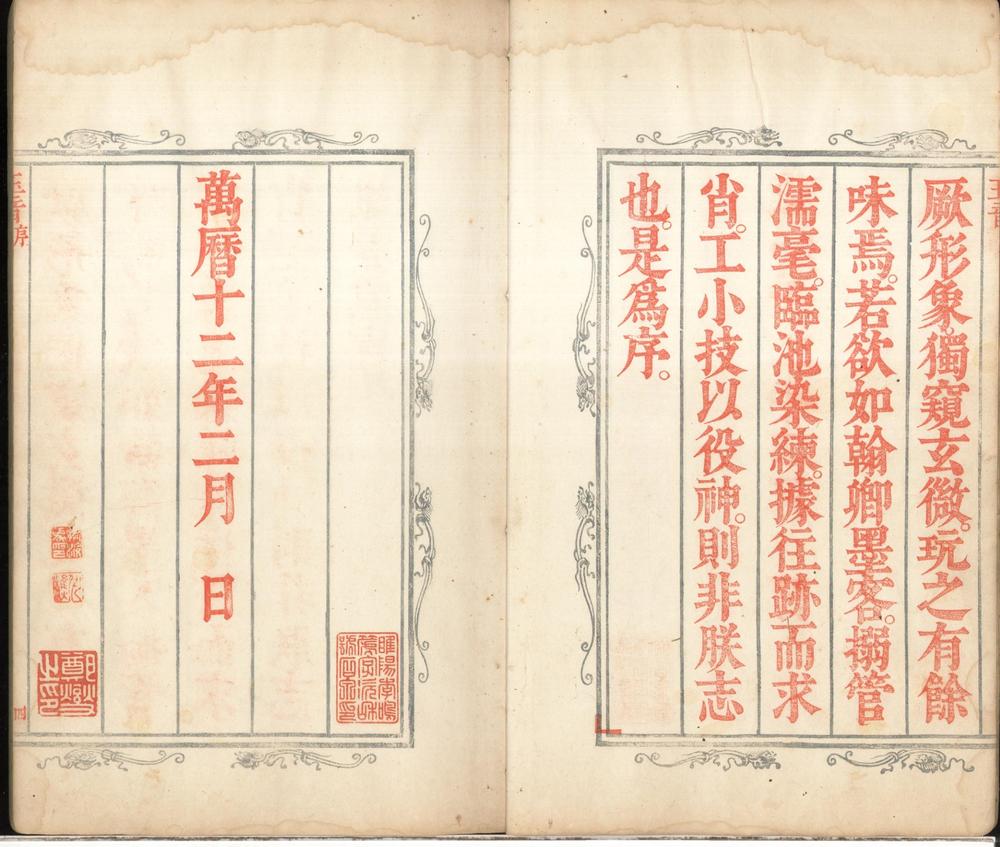 厥形象獨窺玄微。玩之有餘
味焉。若欲如翰卿墨客。搦管
濡毫。臨池染練。據往跡而求
肖。工小技以役神。則非朕志
也。是爲序。
萬曆十二年二月　日
四